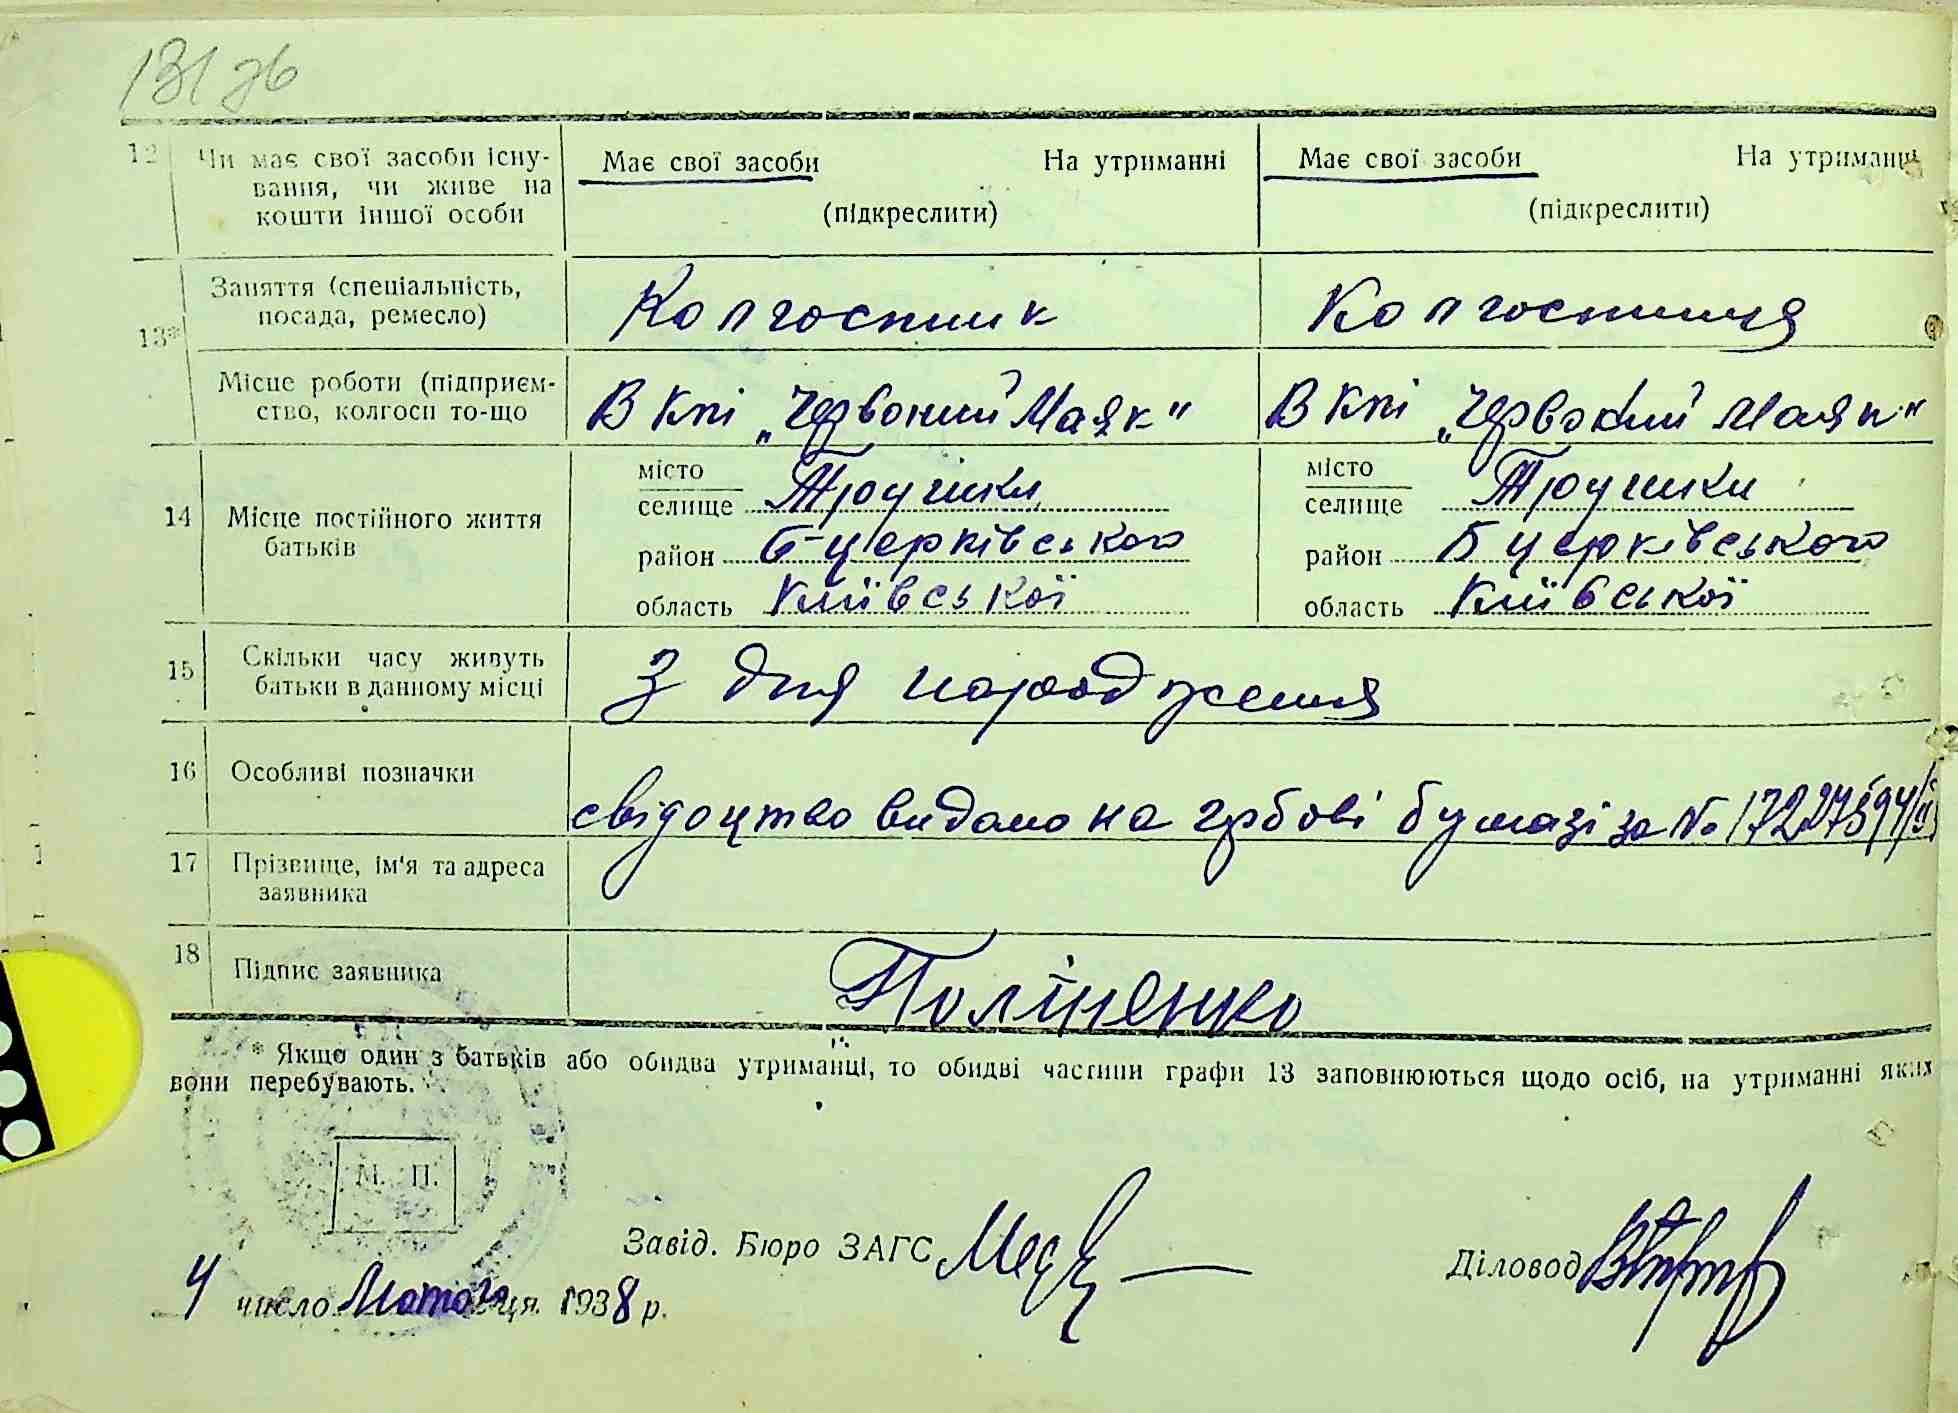 131 зв
12 Чи має свої засоби існу- Має свої засоби На утриманні Має свої засоби На утриманні
вання, чи живе на
кошти іншої особи (підкреслити) (підкреслити)
13* Заняття (спеціальність,
посада, ремесло) Колгоспник Колгоспниця
Місце роботи (підприєм-
ство, колгосп то-що В кпі „Червоний Маяк" В кпі „Червоний Маяк"
14 Місце постійного життя
батьків
місто місто
селище Трушки селище Трушки
район Б-церківського район Б церківського
область Київської область Київської
15 Скільки часу живуть
батьки в данному місці З дня народження
16 Особливі позначки
свідоцтво видано на грбові бумазі за №
17 Прізвище, ім'я та адреса
заявника
18 Підпис заявника Поліщенко
* Якщо один з батьків або обидва утриманці, то обидві частини графи 13 заповнюються щодо осіб, на утриманні яких
вони перебувають.
М. П.
Завід. Бюро ЗАГС Діловод
4 число Лютого ця 1938 р.